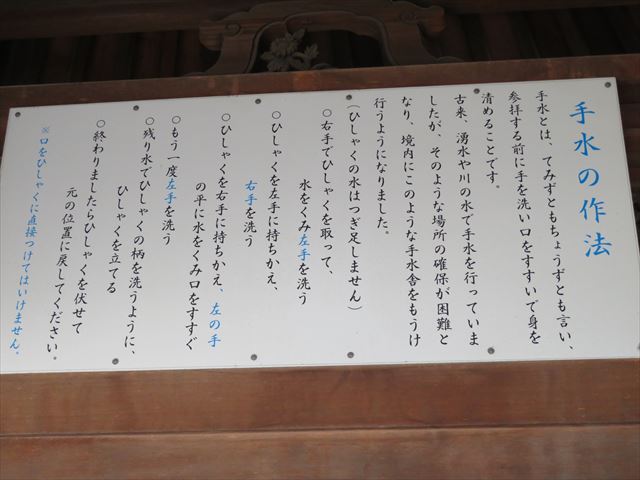 手水の作法
手水とは、てみずともちょうずとも言い、
参拝する前に手を洗い口をすすいで身を
清めることです。
古来、湧水や川の水で手水を行っていま
したが、そのような場所の確保が困難と
なり、境内にこのような手水舎をもうけ
行うようになりました。
（ひしゃくの水はつぎ足しません）
○右手でひしゃくを取って、
水をくみ左手を洗う
○ひしゃくを左手に持ちかえ、
右手を洗う
○ひしゃくを右手に持ちかえ、左の手
の平に水をくみ口をすすぐ
○もう一度左手を洗う
○残り水でひしゃくの柄を洗うように、
ひしゃくを立てる
○終わりましたらひしゃくを伏せて
元の位置に戻してください。
※口をひしゃくに直接つけてはいけません。